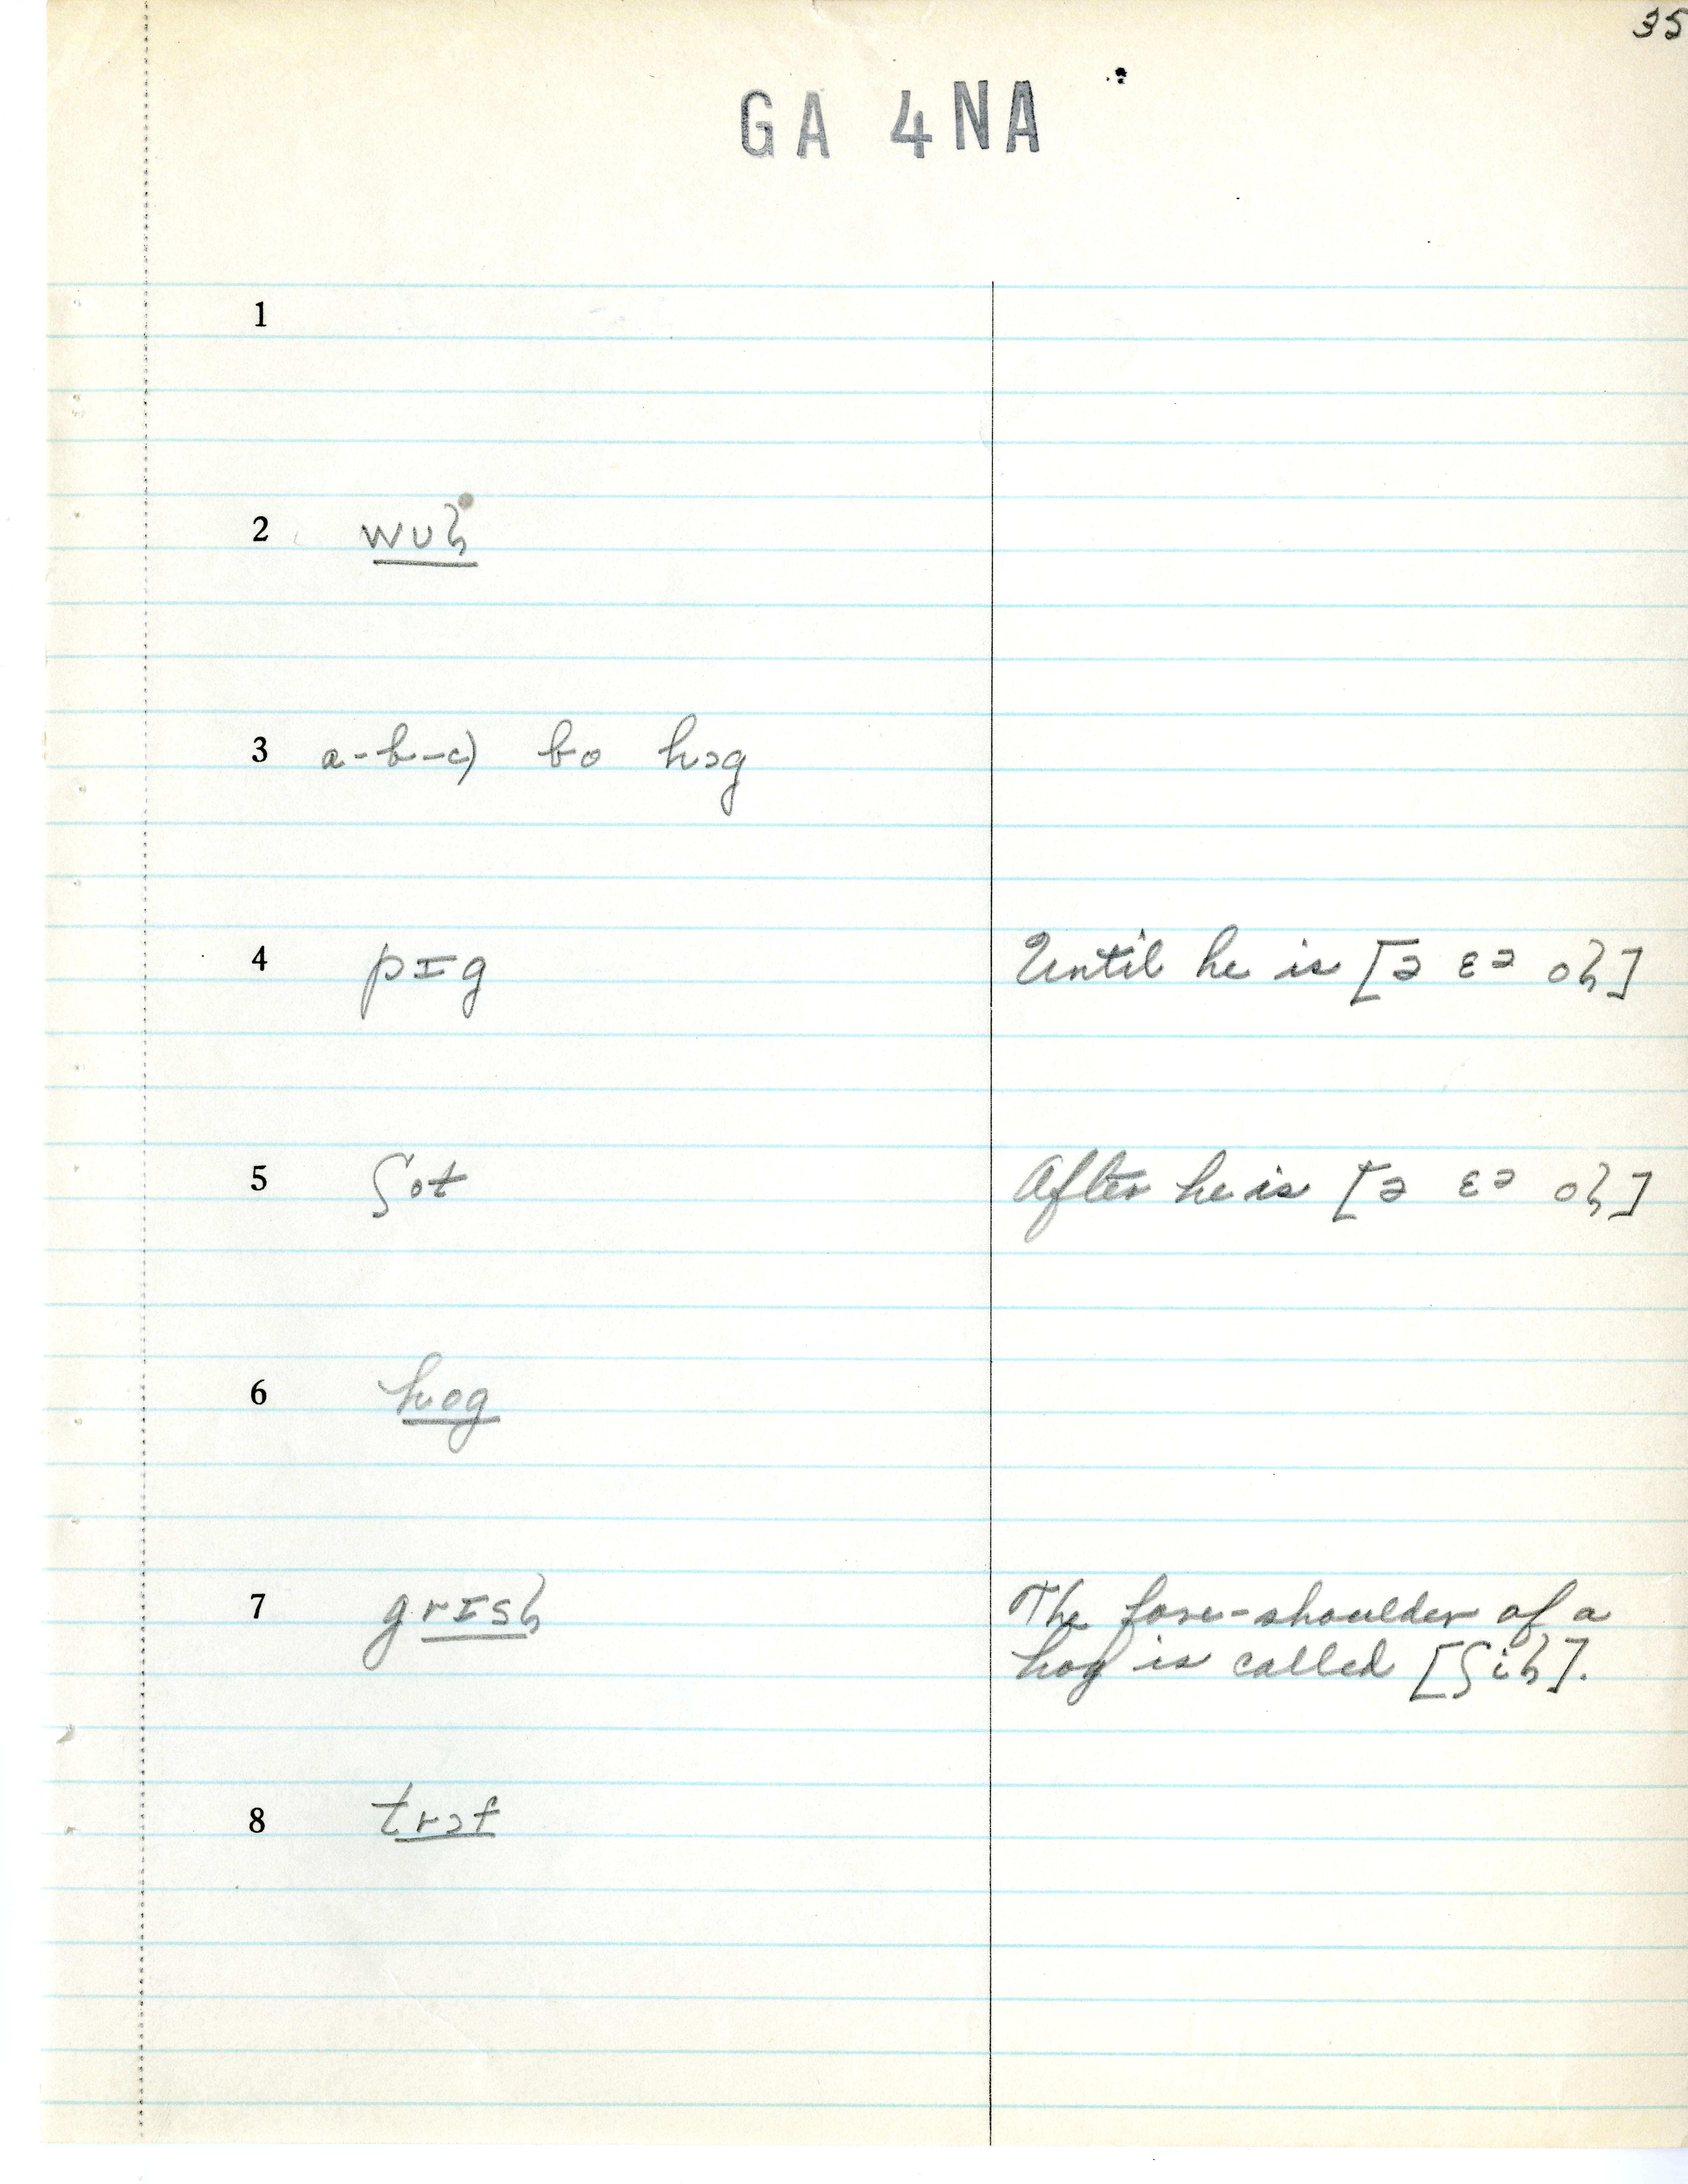 35
GA 4NA
1
2 wuɫ
3 a-b-c) bo hɔg
4 pɪg Until he is [ə ɛə oɫ]
5 ʃot After he is [ə ɛə oɫ]
6 hog
7 grɪsɫ The fore-shoulder of a
hog is called [ʃiɫ].
8 trɔf